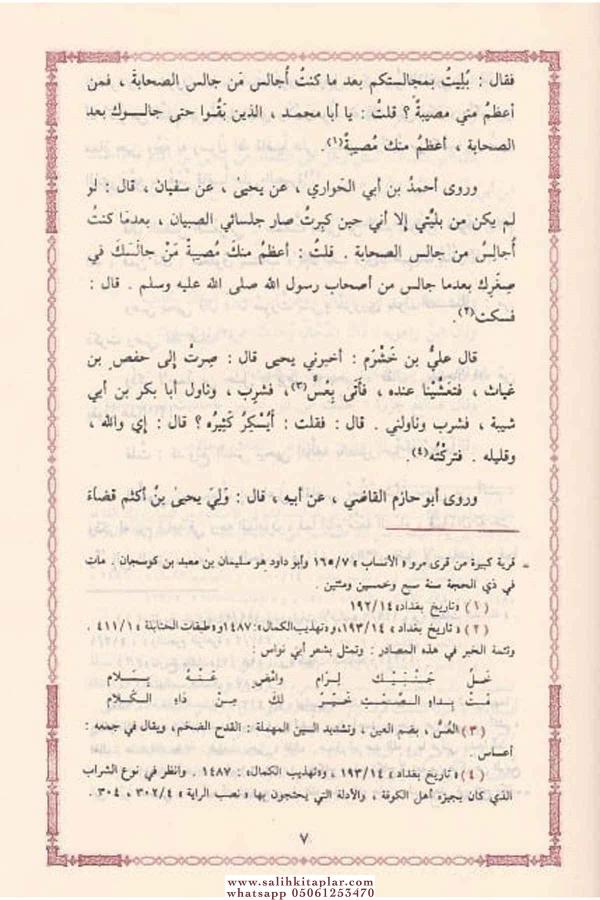 فقال : بُلِيتُ بمجالستكم بعد ما كنتُ أُجالس مَن جالس الصحابة ، فمن
أعظمُ مني مصيبةً ؟ قلتُ : يا أبا محمد ، الذين بَقُوا حتى جالسوك بعد
الصحابة ، أعظمُ منك مُصيبةً(١) .
وروى أحمدُ بن أبي الحَواري ، عن يحيىٰ ، عن سفيان ، قال : لو
لم يكن من بليَّتي إلا أني حين كبِرتُ صار جلسائي الصبيان ، بعدمَا كنتُ
أُجالِسُ من جالس الصحابة . قلتُ : أعظمُ منكَ مُصيبةً مَنْ جالَسَكَ في
صِغَرِك بعدما جالس من أصحاب رسول الله صلى الله عليه وسلم . قال :
فسكت(٢) .
قال عليُّ بن خَشْرَم : أخبرني يحيى قال : صِرتُ إلى حفص بن
غياث ، فتعَشَّيْنا عنده ، فَأَتَى بِعُسٍّ(٣)، فشرِب ، وناول أبا بكر بن أبي
شيبة ، فشرب وناولني . قال : فقلت : أَيُسْكِرُ كَثِيرُه ؟ قال : إي والله ،
وقليله . فتركْتُه(٤) .
وروى أبو حازم القاضي ، عن أبيه ، قال : وَلِيَ يحيىٰ بنُ أكثم قضاءَ
= قرية كبيرة من قرى مرو « الأنساب » ١٦٥/٧ وأبو داود هو سليمان بن معبد بن كوسجان . مات
في ذي الحجة سنة سبع وخمسين ومئتين .
(١) «تاريخ بغداد» ١٩٢/١٤
(٢) « تاريخ بغداد » ١٩٣/١٤، و«تهذيب الكمال»: ١٤٨٧ و«طبقات الحنابلة » ٤١١/١ .
وتتمة الخبر في هذه المصادر : وتمثل بشعر أبي نواس :
خَلِّ جَنْبَيْكَ لِرَامِ وامْضِ عَنْهُ بِسَلامِ
مُتْ بِداءِ الصَّمْتِ خَيْرٌ لَكَ مِنْ دَاءِ الكَلَامِ
(٣) العُسّ ، بضم العين ، وتشديد السين المهملة : القدح الضخم، ويقال في جمعه :
أعساس .
(٤) « تاريخ بغداد » ١٩٣/١٤ ، و«تهذيب الكمال» : ١٤٨٧ . وانظر في نوع الشراب
الذي كان يجيزه أهل الكوفة ، والأدلة التي يحتجون بها « نصب الراية » ٣٠٢/٤ ، ٣٠٤ .
٧
www.salihkitaplar.com
whatsapp 05061253470